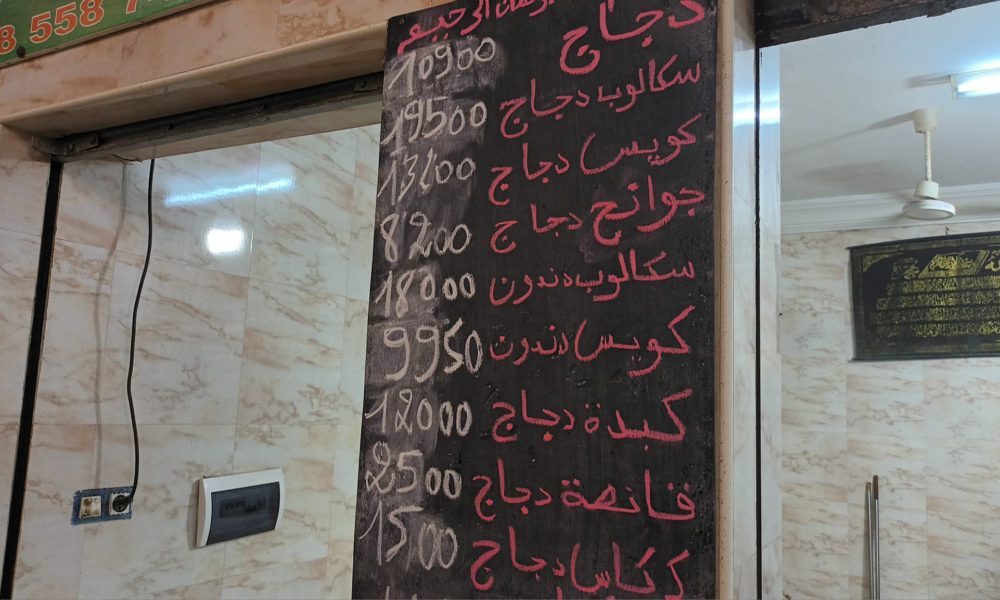 8 558 7
الرحمن الرحيم
دجاج 10900
سكالوب دجاج 19500
كويس دجاج 13200
جوانح دجاج 8200
سكالوب دندون 18000
كويس دندون 9950
كبدة دجاج 12000
قانصة دجاج 2500
كركاس دجاج 1500